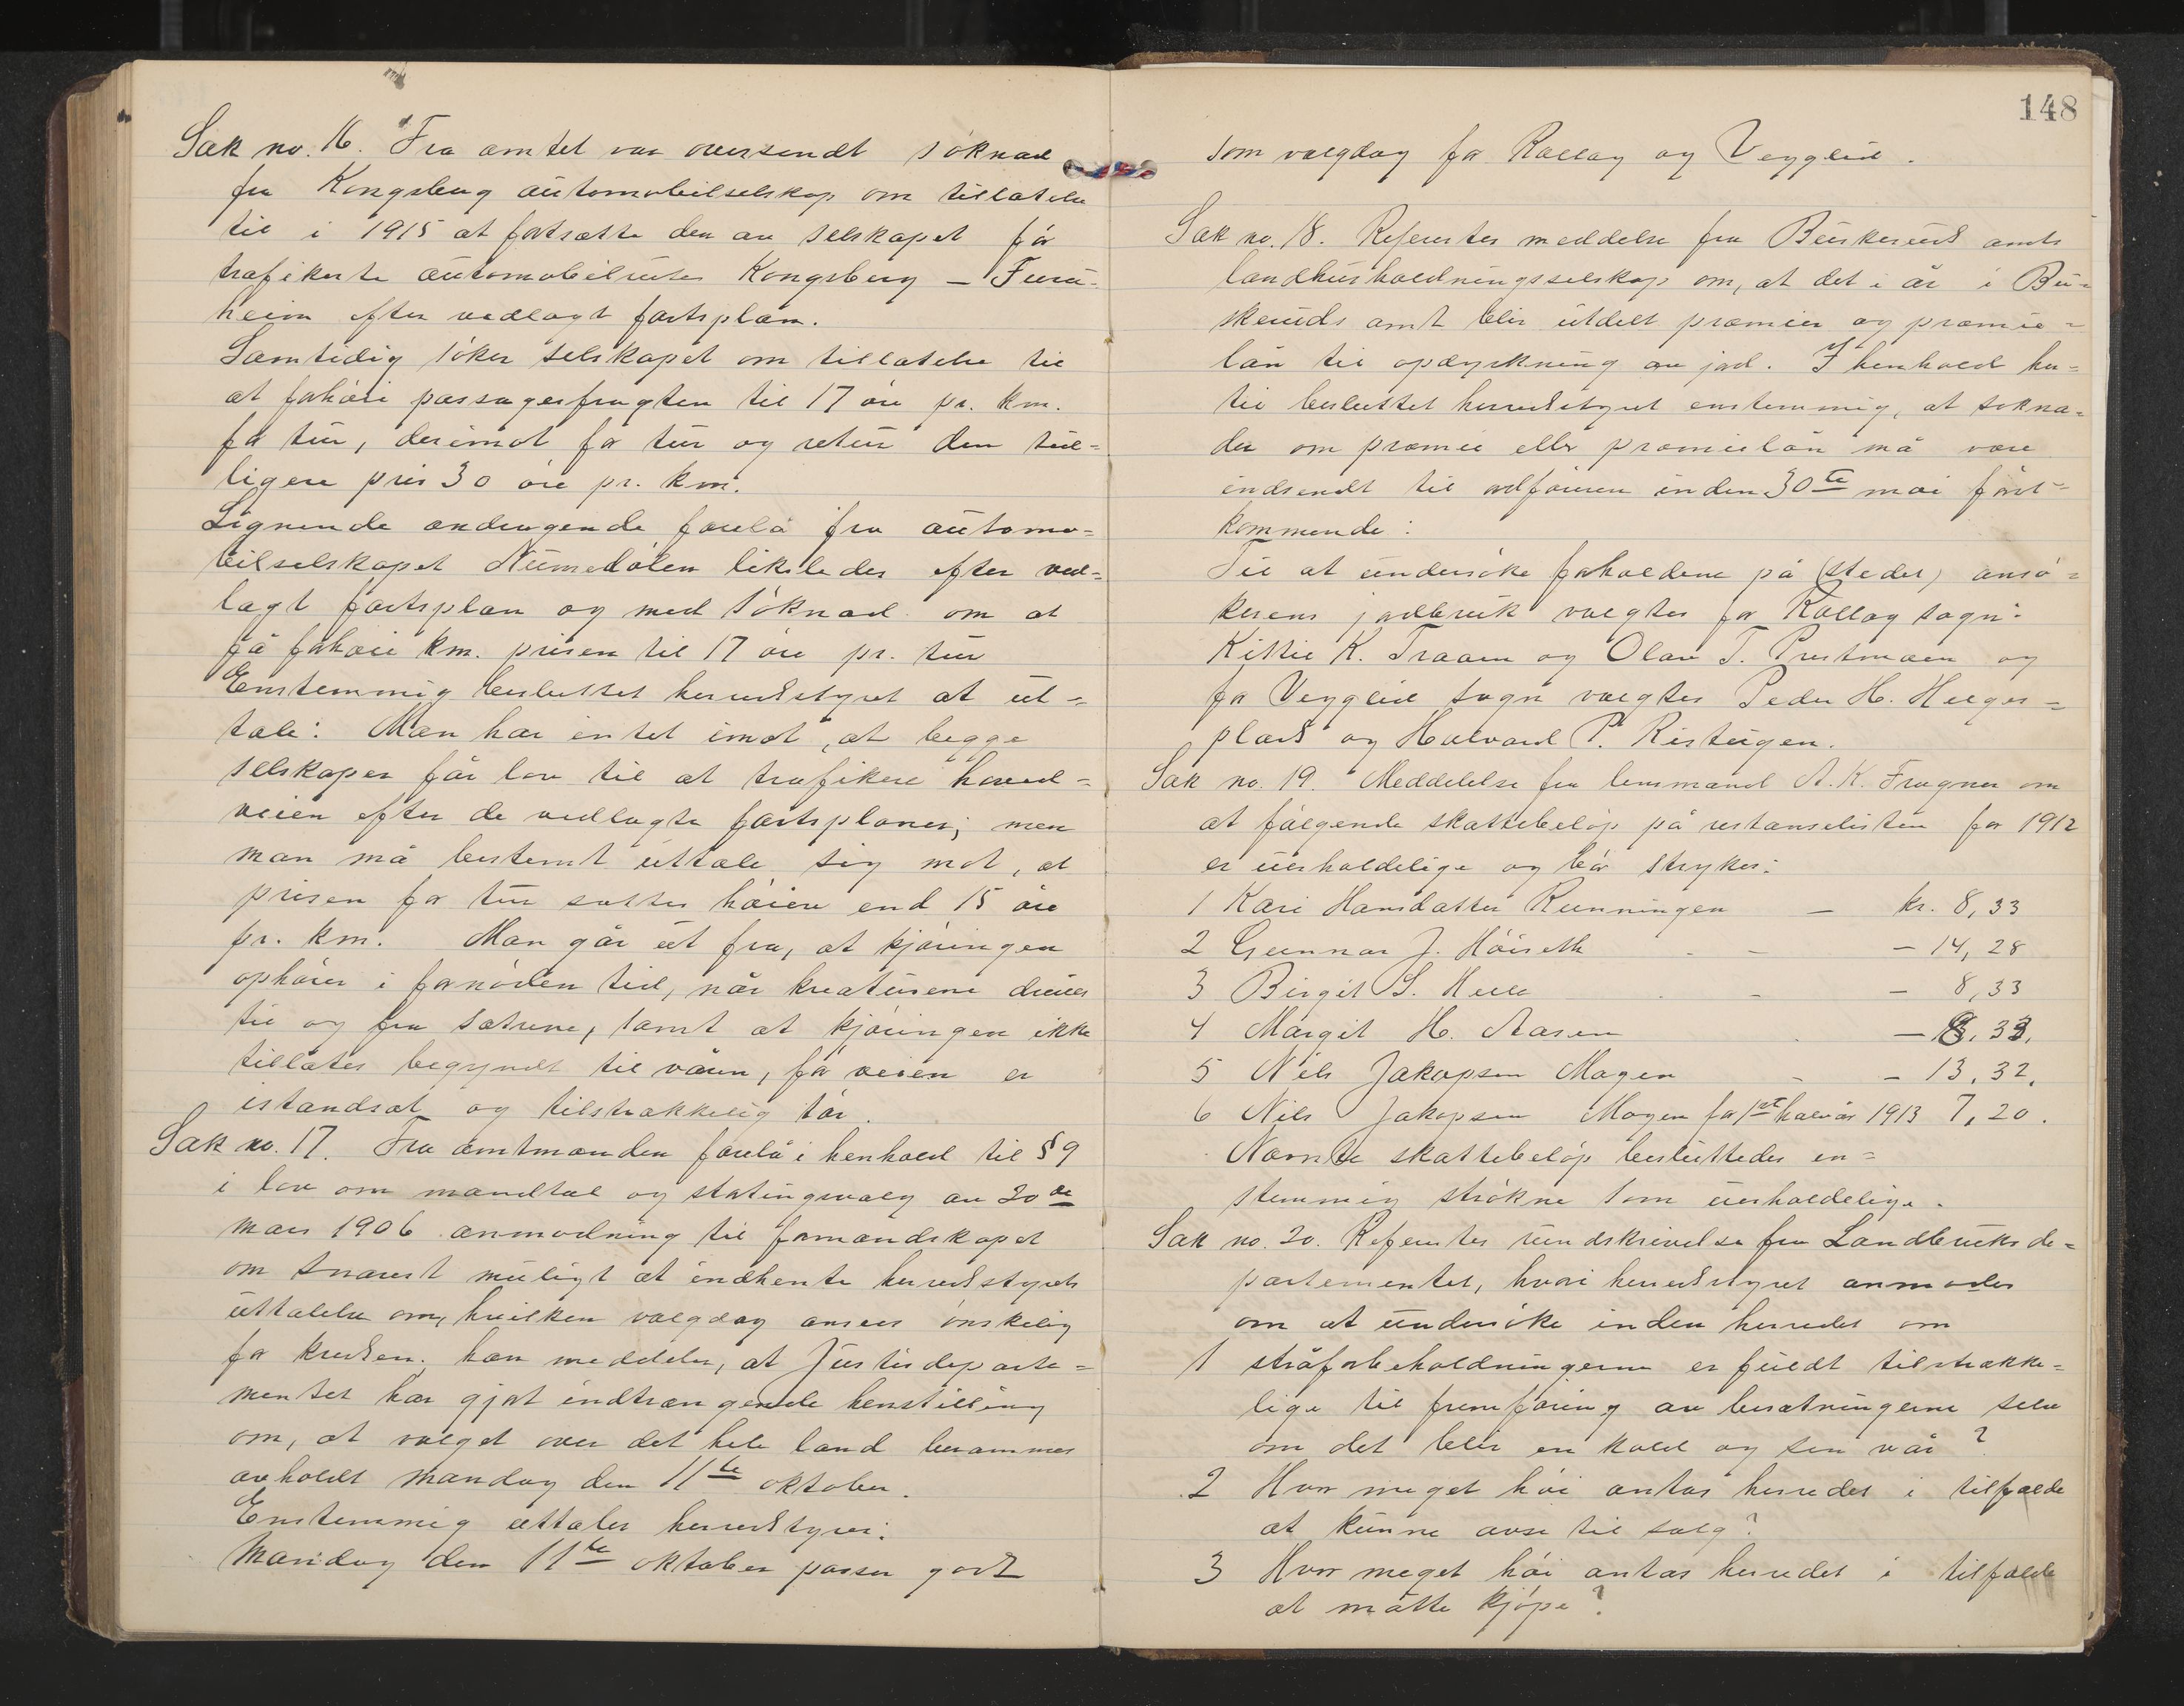 Sak no. 16. Fra amtet var oversendt søknad
fra Kongsberg automobilselskap om tillatelse
til i 1915 at fortsætte den av selskapet før
trafikerte automobilrute Kongsberg – Furu-
heim efter vedlagt fartsplan.
Samtidig søker selskapet om tillatelse til
at forhøie passagerfragten til 17 øre pr. km.
for tur, derimot for tur og retur den tid-
ligere pris 30 øre pr. km.
Lignende andragende forelå fra automo-
bilselskapet Numedølen likeledes efter ved-
lagt fartsplan og med søknad om at
få forhøie km. prisen til 17 øre pr. tur
Enstemmig besluttet herredstyret at ut-
tale: Man har intet imot, at begge
selskaper får lov til at trafikere hoved-
veien efter de vedlagte fartsplaner; men
man må bestemt uttale sig mot, at
prisen for tur sættes høiere end 15 øre
pr. km. Man går ut fra, at kjøringen
ophører i fornøden tid, når kreaturene drives
til og fra sætrene, samt at kjøringen ikke
tillates begyndt til våren, før veien er
istandsat og tilstrækkelig tør.
Sak no. 17. Fra amtmanden forelå i henhold til § 9
i lov om mandtal og statingsvalg av 20de
mars 1906 anmodning til formandskapet
om snarest muligt at indhente herredstyrets
uttalelse om, hvilken valgdag ansees ønskelig
for kredsen; han meddeler, at Justisdeparte-
mentet har gjort indtrængende henstilling
om, at valget over det hele land berammes
avholdt mandag den 11te oktober.
Enstemmig uttaler herredstyret:
Mandag den 11te oktober passer godt
148
som valgdag for Rollag og Veggli.
Sak no. 18. Refereertes meddelse fra Buskeruds amts
landhusholdningsselskap om, at det i år i Bu-
skeruds amt blir utdelt præmier og præmie-
lån til opdyrkning av jord. I henhold her-
til besluttet herredstyret enstemmig, at søkna-
der om præmie eller præmielån må være
indsendt til ordføreren inden 30te mai først-
kommende:
Til at undersøke forholdene på (stedet) ansø-
kerens jordbruk valgtes for Rollag sogn:
Kittil K. Traaen og Olav T. Prestmoen og
for Veggli sogn valgtes Peder H. Helges-
plads og Halvard P. Risteigen.
Sak no. 19. Meddelelse fra lensmand A. K. Fragner om
at følgende skattebeløp på restanselisten for 1912
er uerholdelige og bør strykes:
1 Kari Hansdatter Runningen – kr. 8,33
2 Gunnar J. Høiseth - – – 14,28
3 Birgit S. Kull - – – 8,33
4 Margit H. Aasen - – 8,33,
5 Nils Jakopsen Mogen - – 13,32,
6 Nils Jakopsen Mogen for 1ste halvår 1913 7,20.
Nævnte skattebeløp besluttedes en-
stemmig strøkne som uerholdelige.
Sak no. 20. Refereertes rundskrivelse fra Landbruksde-
partementet, hvori herredstyret anmodes
om at undersøke inden herredet om
1 stråforbeholdningerne er fuldt tilstrække-
lige til fremføring av besætningerne selv
om det blir en kold og sen vår?
2 Hvor meget høi antas herredet i tilfælde
at kunne avse til salg?
3 Hvor meget høi antas herredet i tilfælde
at måtte kjøpe?